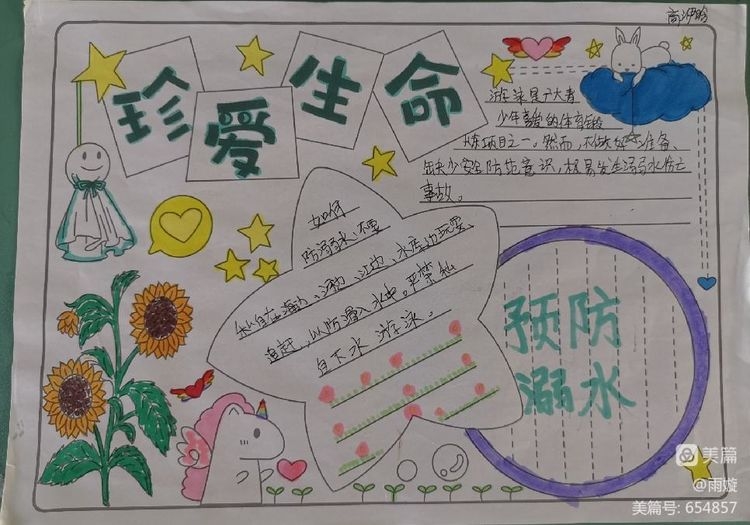 珍爱生命
游泳是广大青
少年喜爱的体育锻
炼项目之一。然而,不做好准备、
缺少安全防范意识,极易发生溺水伤亡
事故。
如何
防溺水:不要
私自在海边、河边、江边、水库边玩耍、
追赶,以防滑入水中。严禁私
自下水游泳。
预防
溺水
美篇
@雨璇
美篇号: 654857